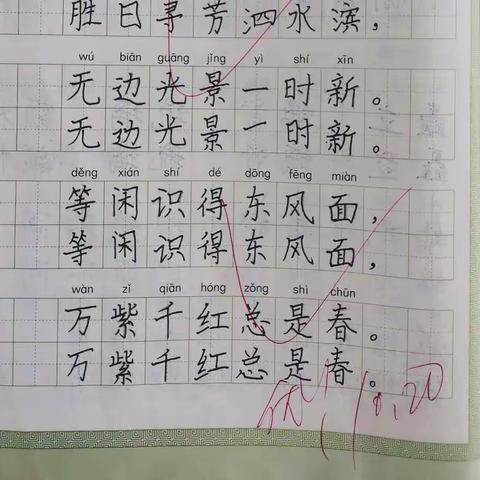 胜日寻芳泗水滨，
wú biān guāng jǐng yì shí xīn
无边光景一时新。
无边光景一时新。
děng xián shí dé dōng fēng miàn
等闲识得东风面，
等闲识得东风面，
wàn zǐ qiān hóng zǒng shì chūn
万紫千红总是春。
万紫千红总是春。
优